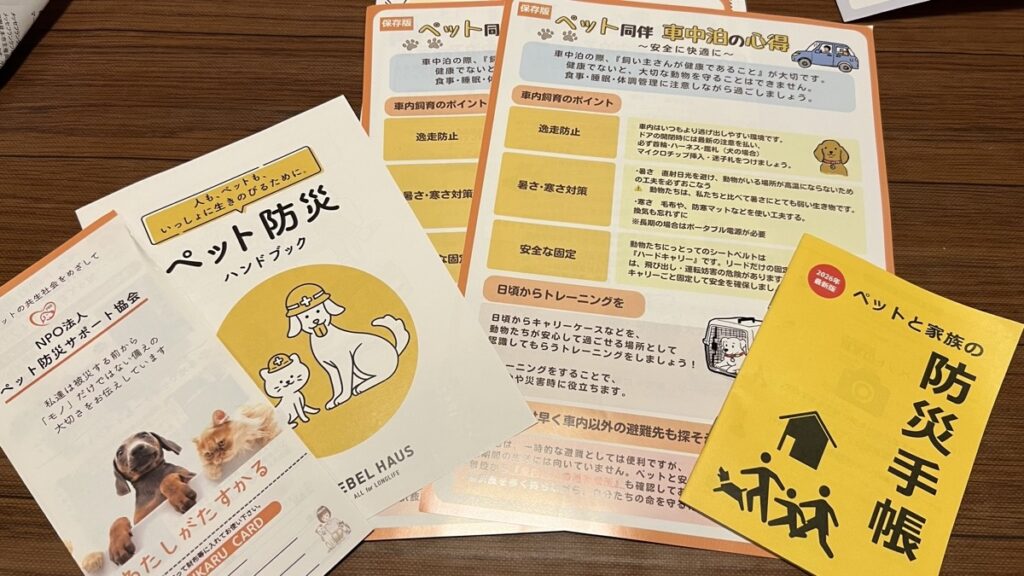 保存版
ペット同伴
車中泊の際、『飼
健康でないと
食事・睡眠・体
車内飼育のポイント
逸走防止
暑さ・寒さ対策
な固定
保存版
ペット同伴 車中泊の心得
～安全に快適に～
車中泊の際、『飼い主さんが健康であること』が大切です。
健康でないと、大切な動物を守ることはできません。
食事・睡眠・体調管理に注意しながら過ごしましょう。
車内飼育のポイント
逸走防止
車内はいつもより逃げ出しやすい環境です。
ドアの開閉時には最新の注意を払い、
必ず首輪・ハーネス・鑑札（犬の場合）
マイクロチップ挿入・迷子札をつけましょう。
暑さ・寒さ対策
・暑さ 直射日光を避け、動物がいる場所が高温にならないため
の工夫を必ずおこなう
動物たちは、私たちと比べて暑さにとても弱い生き物です。
・寒さ 毛布や、防寒マットなどを使い工夫する。
換気も忘れずに
※長期の場合はポータブル電源が必要
安全な固定
動物たちにっとってのシートベルトは
『ハードキャリー』です。リードだけの固定
は、飛び出し・運転妨害の危険があります
キャリーごと固定して安全を確保しまし
日頃からトレーニングを
日頃からキャリーケースなどを、
動物たちが安心して過ごせる場所として
認識してもらうトレーニングをしましょう！
ーニングをすることで、
や災害時に役立ちます。
早く車内以外の避難先も探そ
は、一時的な避難としては便利ですが、
には向いていません。ペットと安
も確認してお
分たちの命を守る
人も、ペットも、
いっしょに生きのびるために。
ペット防災
ハンドブック
EBEL HAUS
ALL for LONGLIFE
ットの共生社会をめざして
NPO法人
ペット防災サポート協会
私達は被災する前から
「モノ」だけではない備えの
大切さをお伝えしています
たしがたすかる
って財布等に入れてお使い下さい。
UKARU CARD
2026年
最新版
ペットと家族の
防災手帳